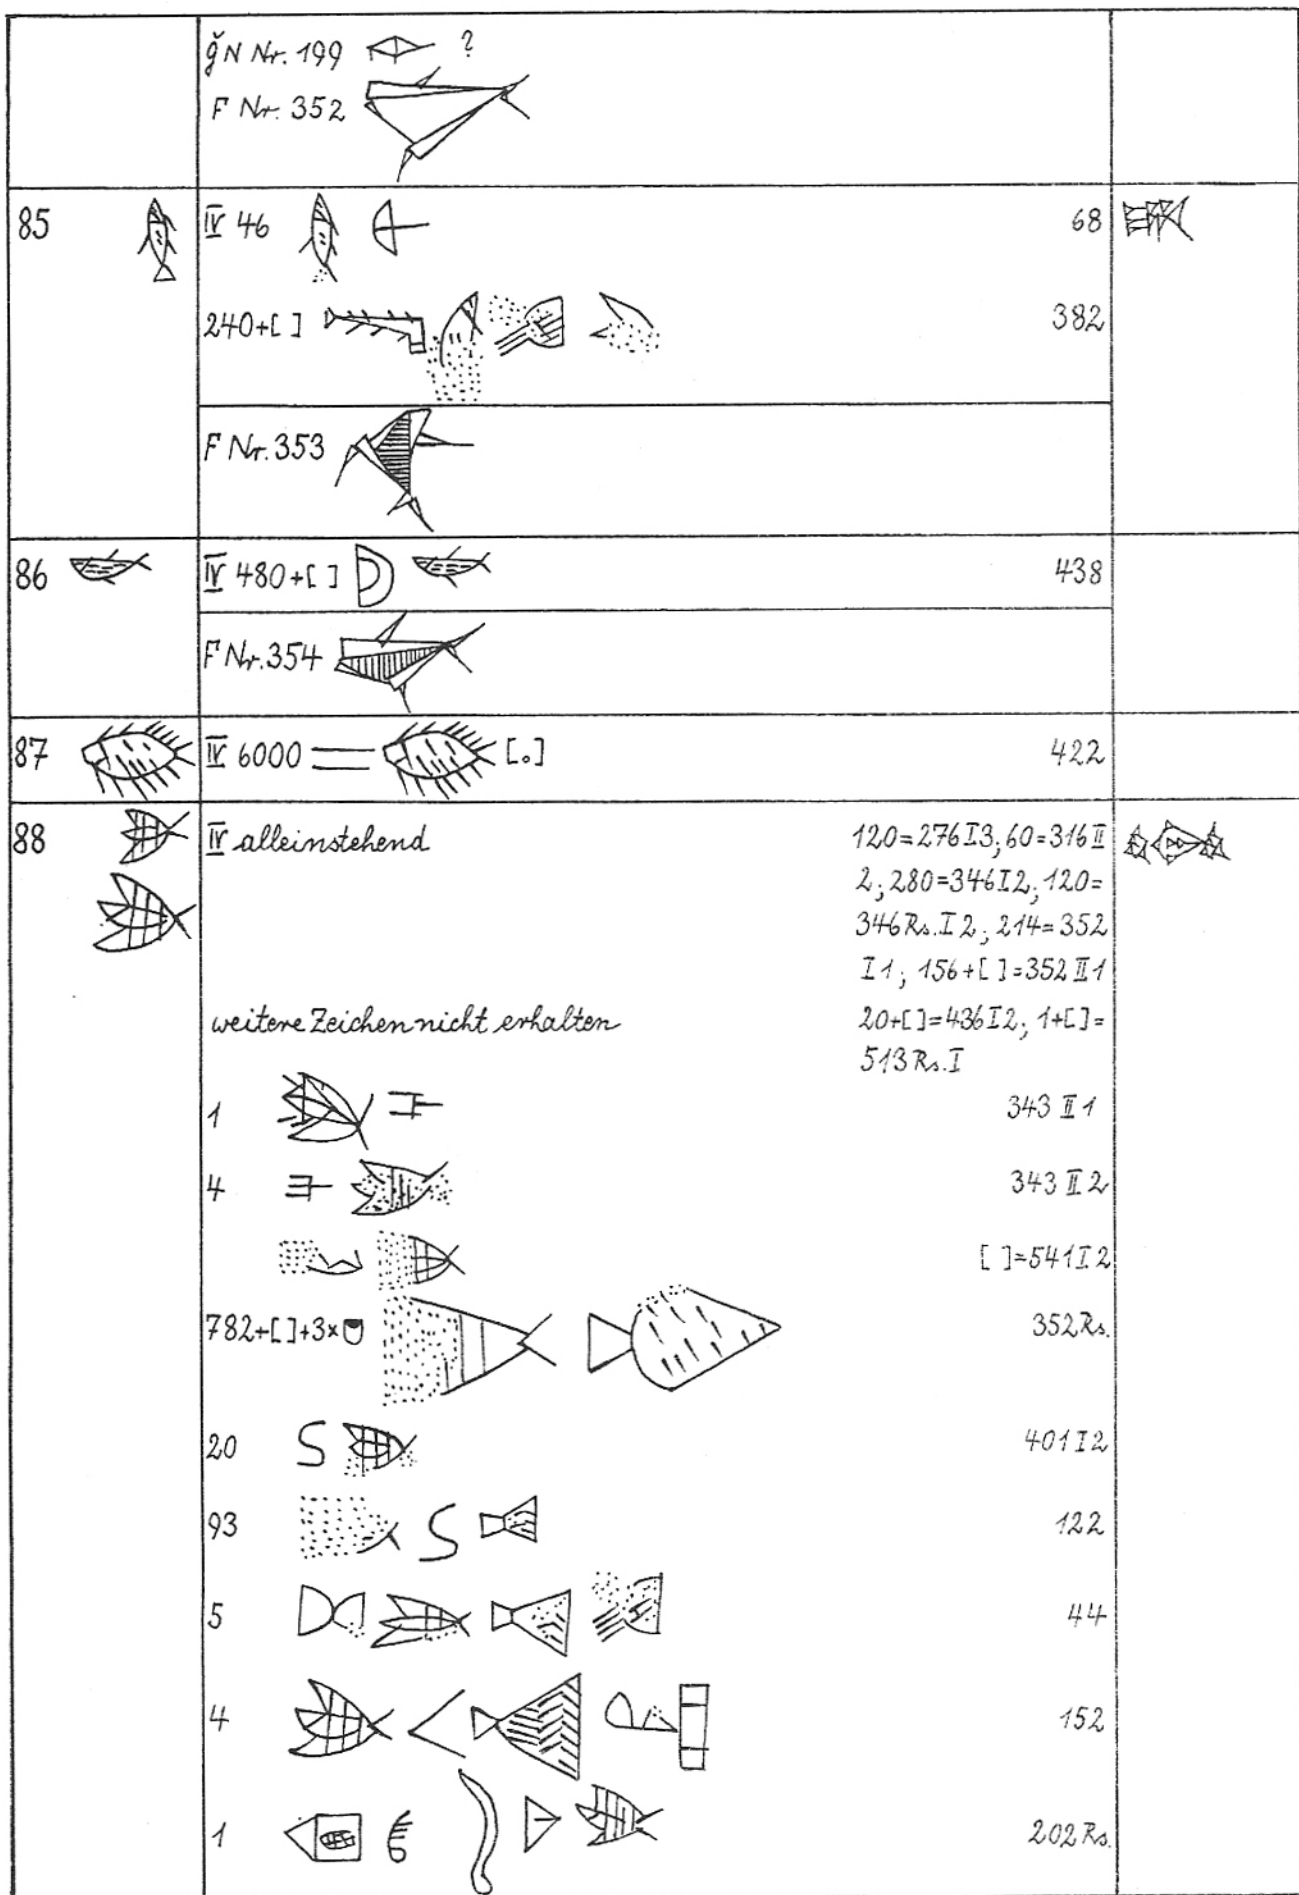 ǧN Nr. 199 ?
F Nr. 352
85 IV 46 68
240+[ ] 382
F Nr. 353
86 IV 480+[ ] 438
F Nr. 354
87 IV 6000 [o] 422
88 IV alleinstehend 120=276 I 3; 60=316 II
2; 280=346 I 2; 120=
346 Rs. I 2; 214=352
I 1; 156+[ ]=352 II 1
weitere Zeichen nicht erhalten 20+[ ]=436 I 2; 1+[ ]=
513 Rs. I
1 343 II 1
4 343 II 2
[ ]=541 I 2
782+[ ]+3× 352 Rs.
20 401 I 2
93 122
5 44
4 152
1 202 Rs.